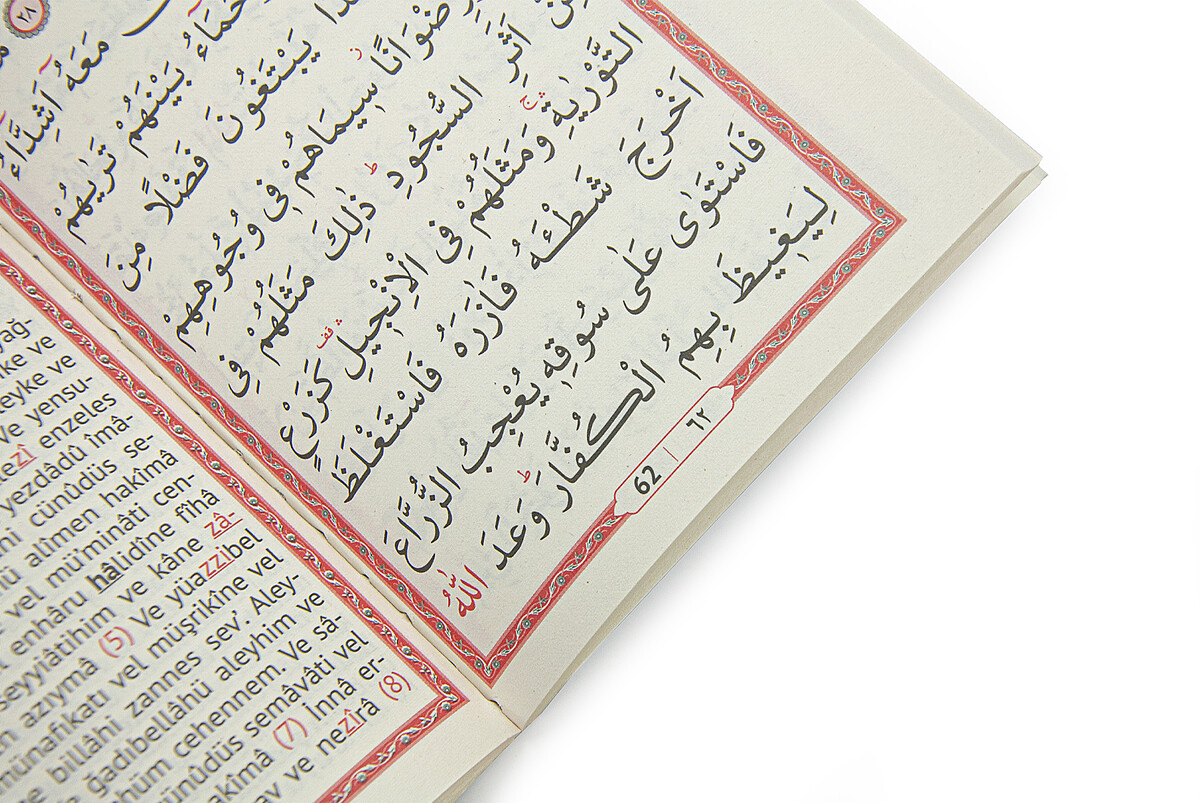 ٢٨
مَعَهُ اَشِدَّٓاءُ
بَيْنَهُمْ تَرٰيهُمْ
يَبْتَغُونَ فَضْلًا مِنَ
سٖيمَاهُمْ فٖى وُجُوهِهِمْ
اَثَرِ السُّجُودِ ذٰلِكَ مَثَلُهُمْ فِى
التَّوْرٰيةِ وَمَثَلُهُمْ فِى الْاِنْجٖيلِ كَزَرْعٍ
اَخْرَجَ شَطْـَٔهُ فَاٰزَرَهُ فَاسْتَغْلَظَ
فَاسْتَوٰى عَلٰى سُوقِهٖ يُعْجِبُ الزُّرَّاعَ
لِيَغٖيظَ بِهِمُ الْكُفَّارَ وَعَدَ اللّٰهُ
62 | ٦٢
yağ-
ke ve
leyke ve
ve yensu-
lezî enzeles
yezdâdû îmâ-
cünûdüs se-
alîmen hakîmâ
vel mü'minâti cen-
enhâru hâlidîne fîhâ
seyyiâtihim ve kâne zâ-
azıymâ (5) Ve yüazzibel
münafikatı vel müşrikîne vel
billâhi zannes sev'. Aley-
ğadıbellâhü aleyhim ve
cehennem. Ve sâ-
cünûdüs semâvâti vel
hakîmâ (7) İnnâ er-
ve nezîrâ (8)